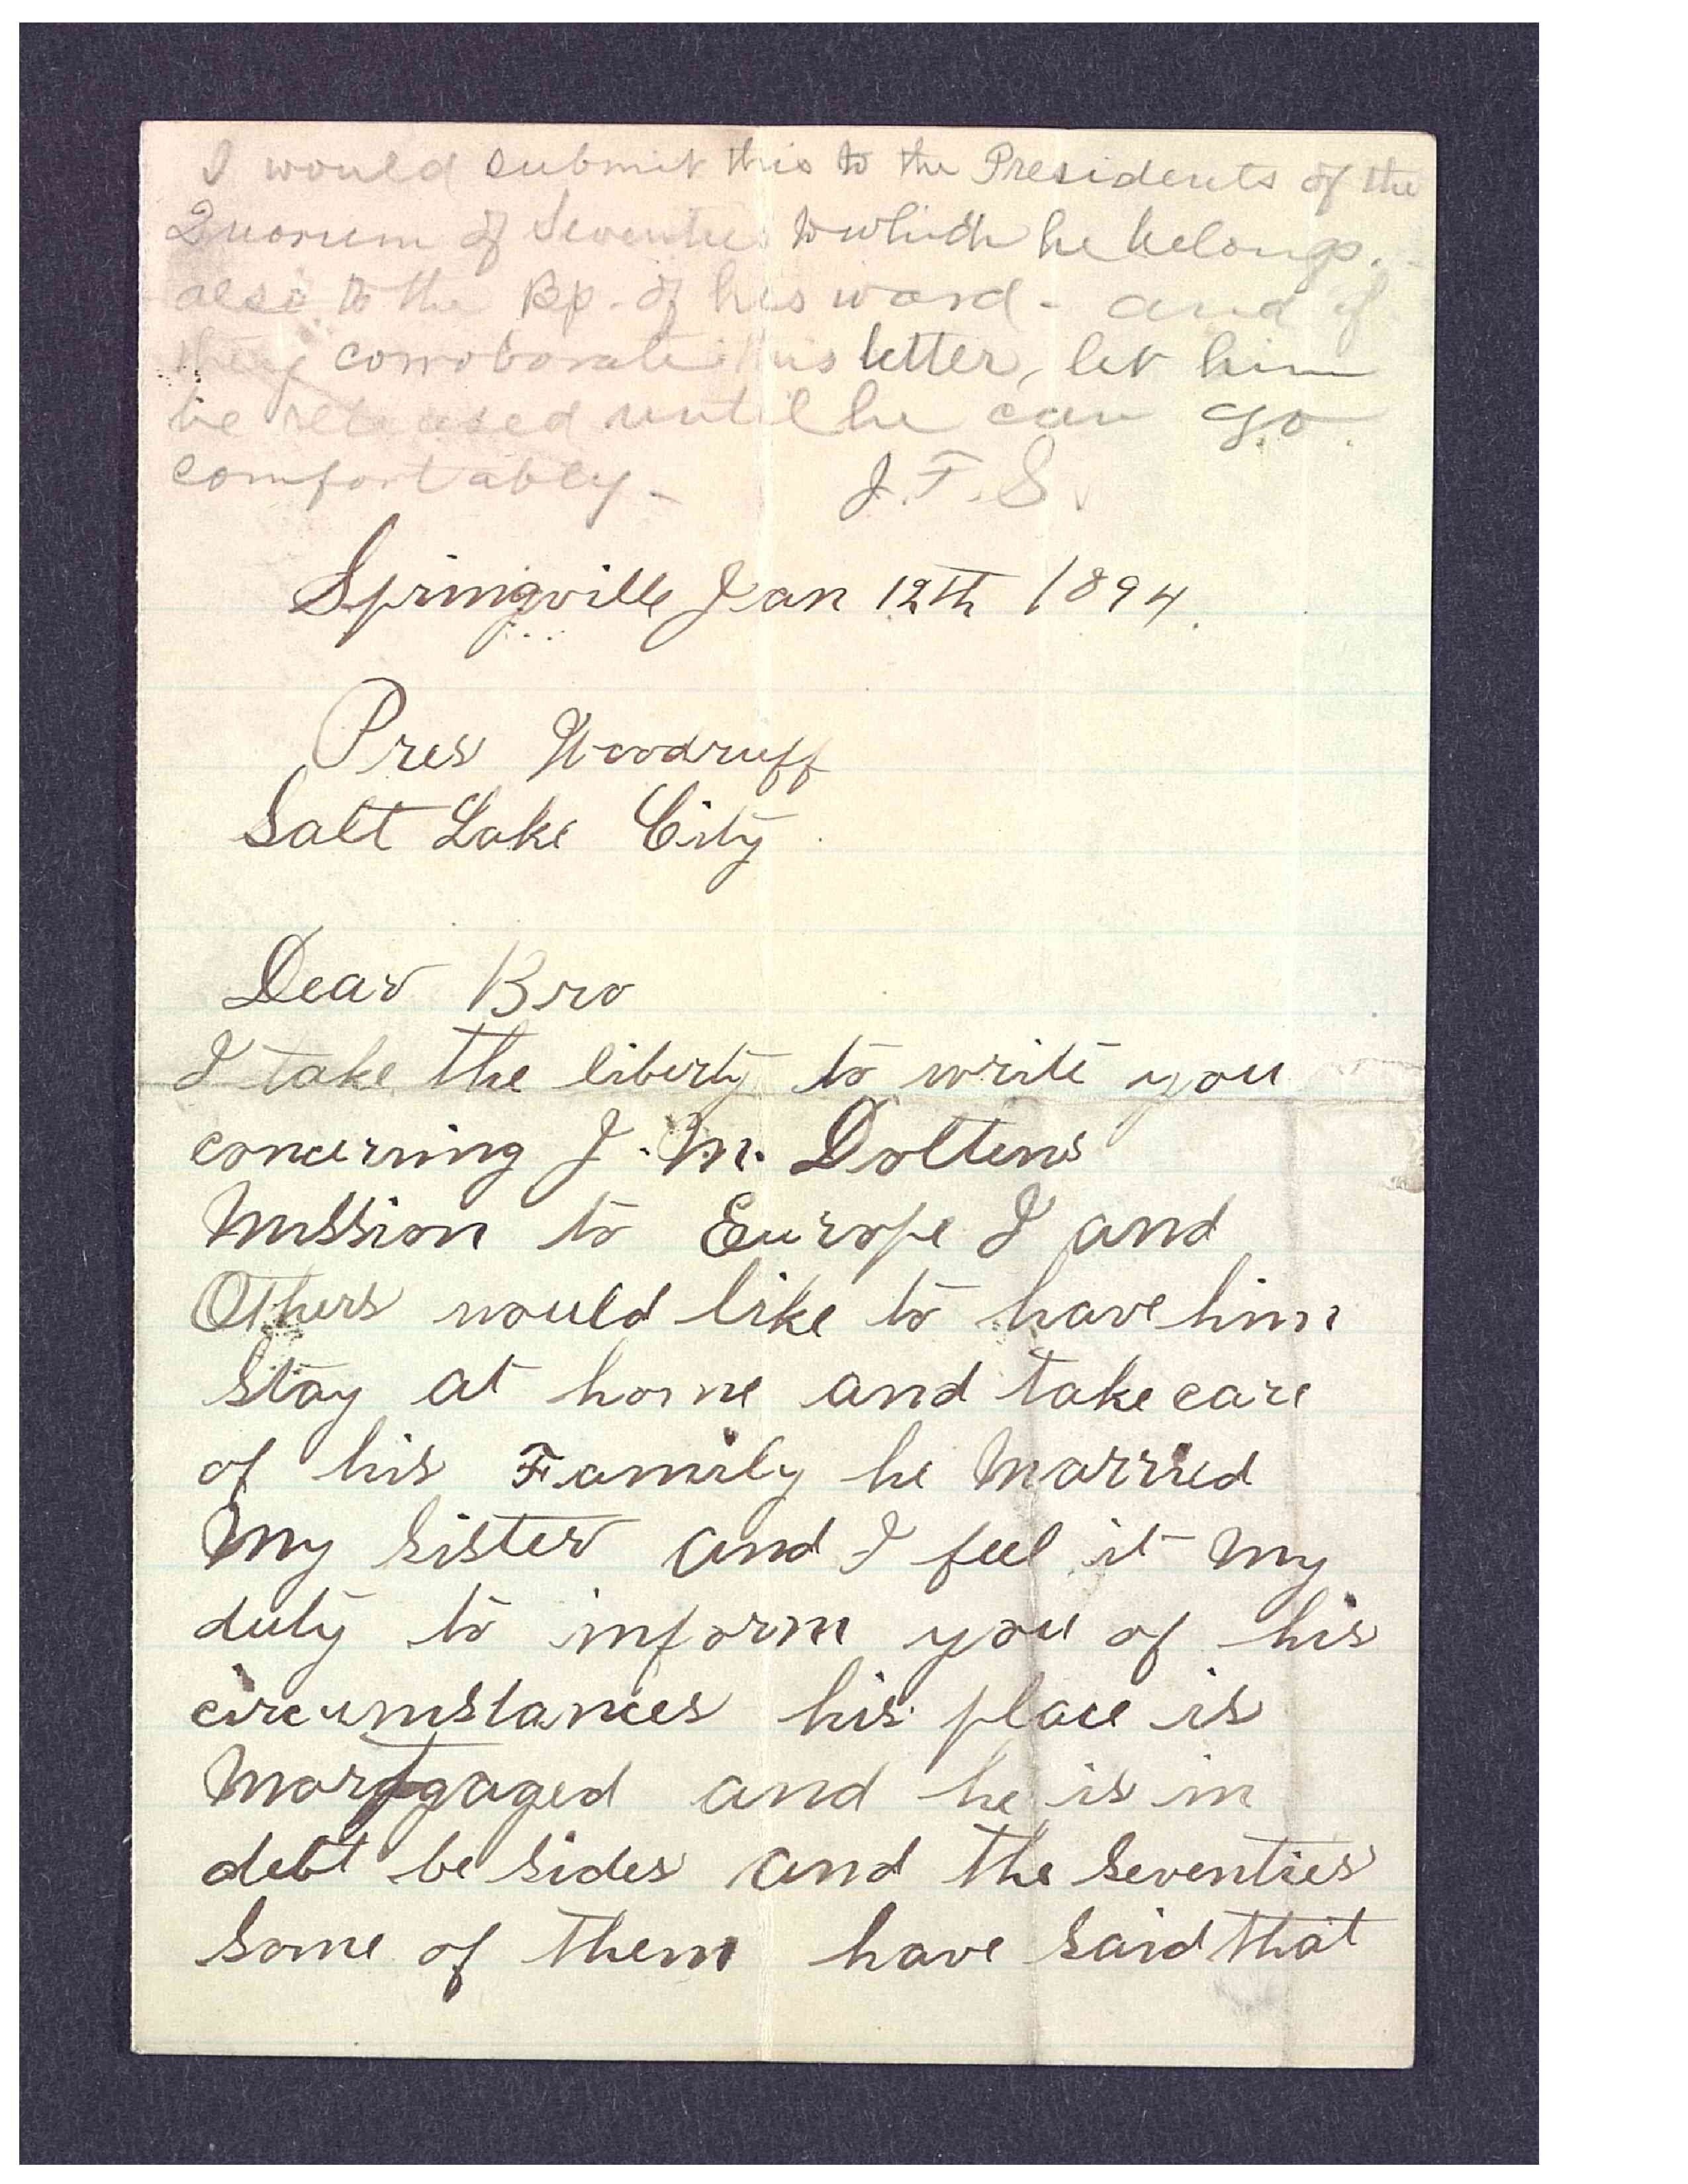 I would submit this to the Presidents of the
Quorum of Seventies to which he belongs.
also to the Bp. of his ward - and if
they corroborate this letter, let him
be released until he can go
comfortably - J. F. S.
Springville Jan 12th 1894.
Pres Woodruff
Salt Lake City
Dear Bro
I take the liberty to write you
concerning J. M. Doltens
Mission to Europe I and
Others would like to have him
Stay at home and take care
of his Family he Married
My Sister and I feel it My
duty to inform you of his
circumstances his place is
Mortgaged and he is in
debt be sides and the Seventies
Some of them have Said that